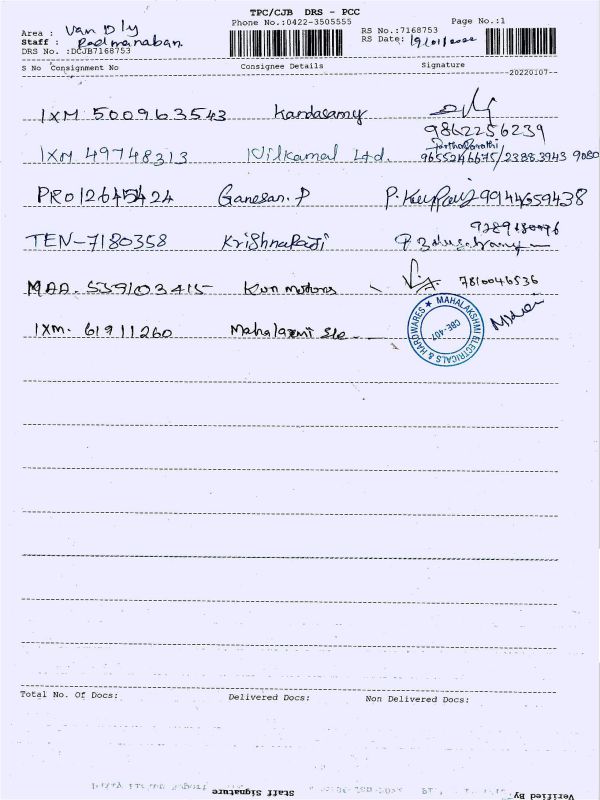 TPC/CJB DRS - PCC
Phone No.:0422-3505555 Page No.:1
Area : Van Dly
Staff : Padmanaban
DRS No. :DCJB7168753
RS No.:7168753
RS Date: 19/01/2022
S No Consignment No Consignee Details Signature
20220107
IXM 500963543 Kandasamy
9862256239
IXM 49748313 Nilkamal Ltd. Parthasarathi
9655246675/23883943 9080
PRO12645424 Ganesan. P 99144659438
9289180096
TEN-7180358 Krishna
MAA. 559103415 Kun motors 7810046536
IXM. 61911260 Mahalaxmi Ele
★ MAHALAKSHMI ELECTRICALS & HARDWARES
CBE-407
Total No. Of Docs: Delivered Docs: Non Delivered Docs:
Staff Signature Verified By